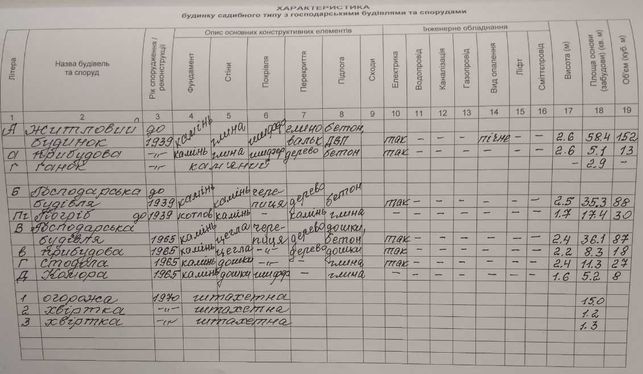 ХАРАКТЕРИСТИКА
будинку садибного типу з господарськими будівлями та спорудами
Літера Назва будівель та споруд Рік спорудження / реконструкції Опис основних конструктивних елементів Інженерне обладнання Висота (м) Площа основи (забудови) (кв. м) Об'єм (куб. м)
Фундамент Стіни Покрівля Перекриття Підлога Сходи Електрика Водопровід Каналізація Газопровід Вид опалення Ліфт Сміттєпровід
1 2 3 4 5 6 7 8 9 10 11 12 13 14 15 16 17 18 19
А Житловий до камінь глина шифер глино бетон,
будинок 1939 вальк. ДВП так – – – пічне – – 2.6 58.4 152
а Прибудова -"- камінь глина шифер дерево бетон так – – – – – 2.6 5.1 13
г Ганок -"- кам'яний – 2.9 –
Б Господарська до камінь камінь чере- дерево бетон
будівля 1939 пиця так – – – – – – 2.5 35.3 88
Пг Погріб до 1939 котлов. камінь – камінь глина – – – – – – – 1.7 17.4 30
В Господарська камінь цегла чере- дерево дошки,
будівля 1965 пиця бетон так – – – – – – 2.4 36.1 87
в Прибудова 1965 камінь цегла -"- дерево дошки так – – – – – – 2.2 8.3 18
Г Стодола 1965 камінь дошки -"- – глина так – – – – – – 2.4 11.3 27
Д Комора 1965 камінь дошки шифер – глина – – – – – – – 1.6 5.2 8
1 огорожа 1970 штахетна 15.0
2 хвіртка -"- штахетна 1.2
3 хвіртка -"- штахетна 1.3